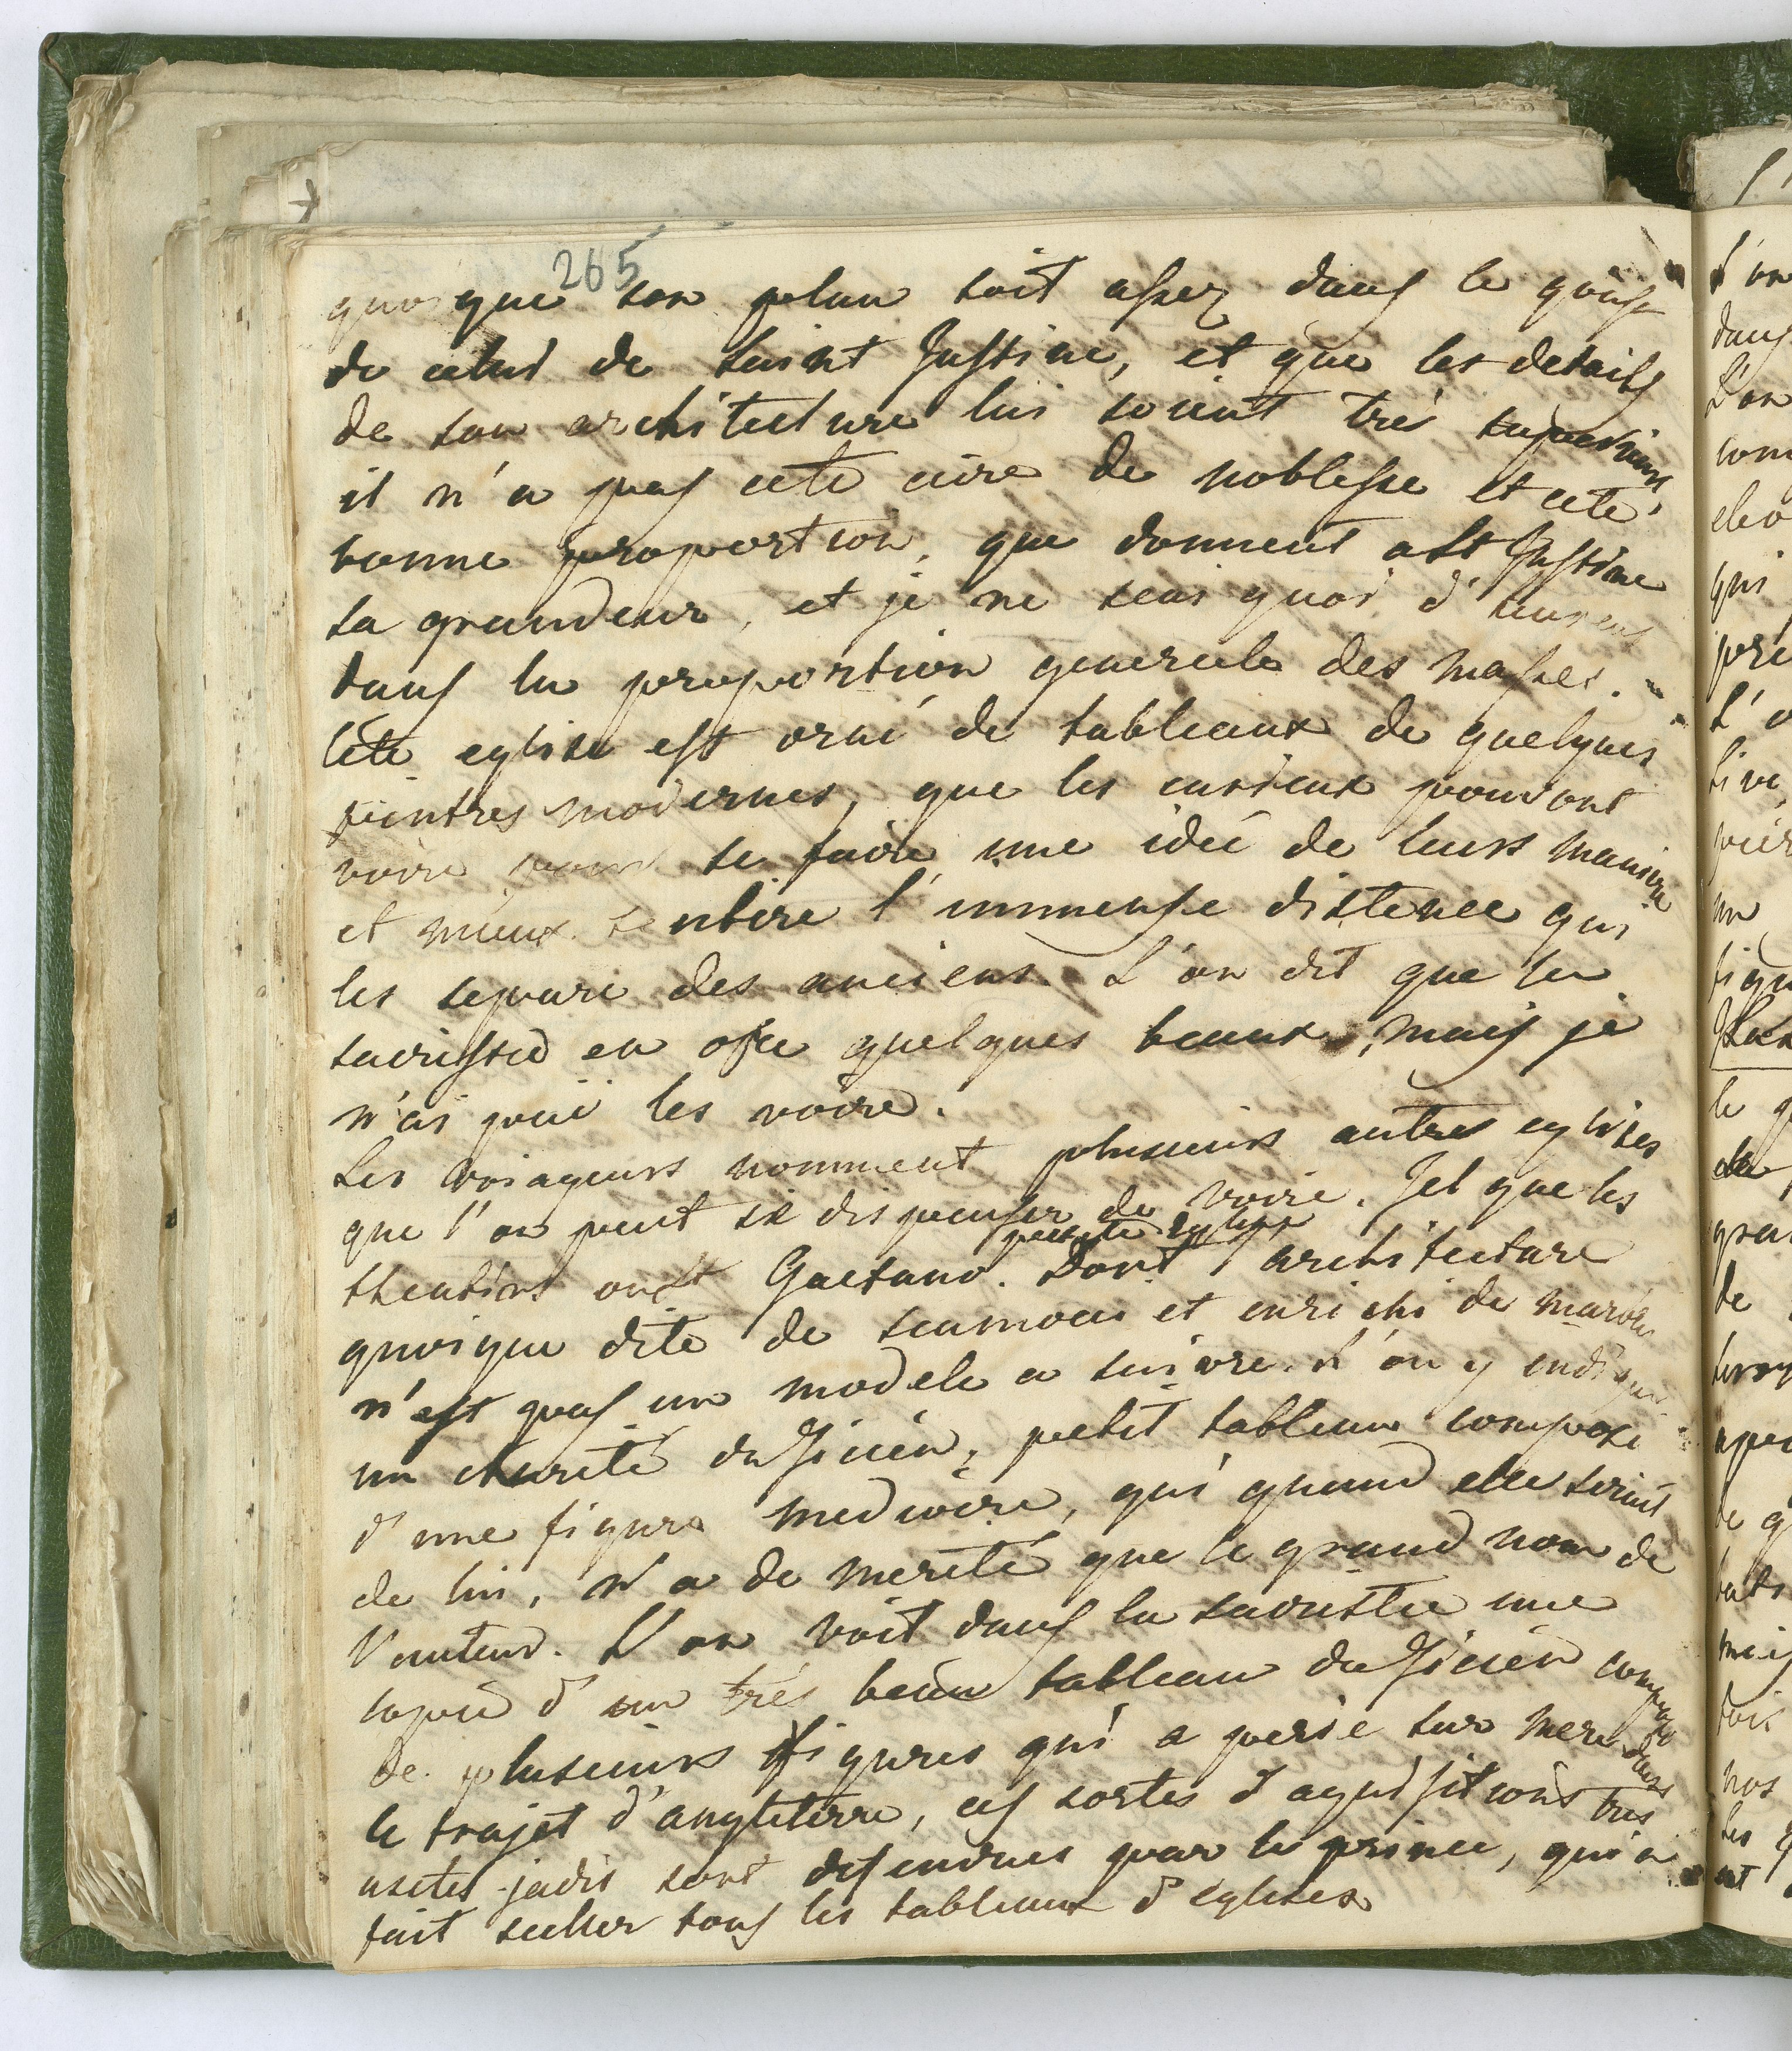 265
quoique son plan soit assez dans le gout
de celui de saint Justine, et que les details
de son architecture lui soient tré superieurs,
il n'a pas cete aire de noblesse et cete
bonne proportion, que donnent a St Justine
sa grandeur, et je ne sais quoi d'heureux
dans la proportion generale des masses.
Cete eglise est orné de tableaux de quelques
peintres modernes, que les curieux pouront
voire pour se faire une idée de leurs maniere
et mieux sentire l'immense distence qui
les separe des anciens. L'on dit que la
sacristie en ofre quelques beaux, mais je
n'ai pui les voire.
Les voiageurs nomment plusieurs autres eglises
que l'on peut se dispenser de voire. Tel que les
theatins ou St Gaetano. petite eglise
Dont l'architecture
quoique dite de scamoci et enrichi de marbres
n'est pas un modele a suivre. L'on y indique
un charité du Ticien, petit tableau composé
d'une figure mediocre, qui quand elle seroit
de lui, n'a de merite que le grand nom de
l'auteur. L'on voit dans la sacristie une
copie d'un trés beau tableau du Ticien composé
de plusieurs figures qui a perie sur mer dans
le trajet d'angleterre, ces sortes d'aquisitions tres
usetes jadis sont defendues par le prince, qui a
fait seller tous les tableaux d'eglises
l'on
dans
L'on
qui
un
le
de
nos